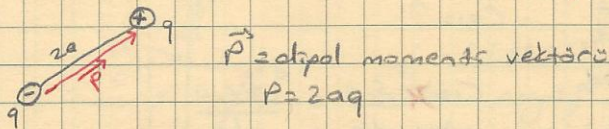 + q
2a
P
- q
P⃗ = dipol momenti vektörü
P = 2aq